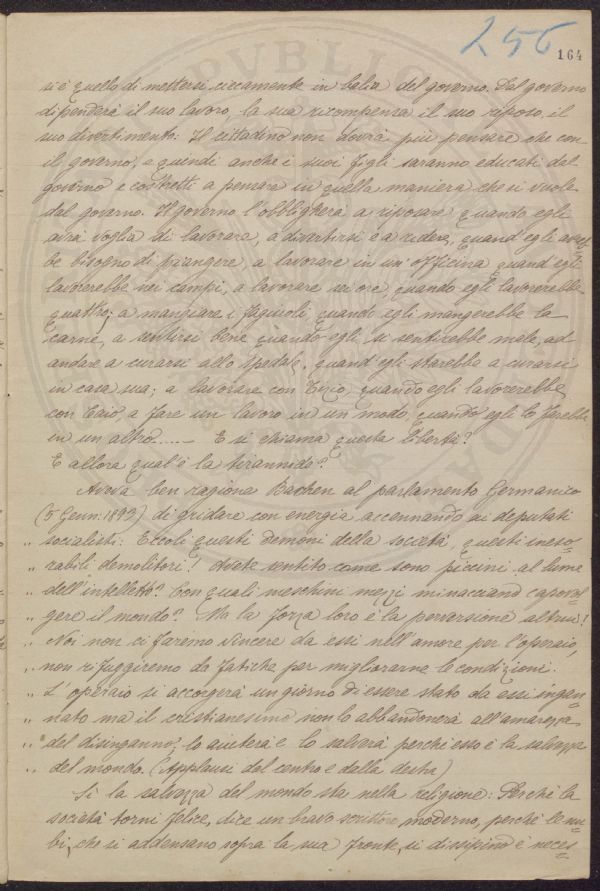 256
164
si è quello di mettersi ciecamente in balia del governo. Dal governo
dipenderà il suo lavoro, la sua ricompensa il suo riposo, il
suo divertimento: Il cittadino non dovrà più pensare che con
il governo, e quindi anche i suoi figli saranno educati dal
governo e costretti a pensare in quella maniera che si vuole
dal governo. Il governo l'obbligherà a riposare quando egli
avrà voglia di lavorare, a divertirsi e a ridere, quand'egli avreb=
be bisogno di piangere, a lavorare in un'officina quand'egli
lavorerebbe nei campi, a lavorare sei ore, quando egli lavorerebbe
quattro; a mangiare i fagiuoli quando egli mangerebbe la
carne, a sentirsi bene quando egli si sentirebbe male, ad
andare a curarsi allo spedale, quand'egli starebbe a curarsi
in casa sua; a lavorare con Tizio, quando egli lavorerebbe
con Caio, a fare un lavoro in un modo, quando egli lo farebbe
in un altro ..... E si chiama questa libertà?
E allora qual'è la tirannide?
Aveva ben ragione Bachen al parlamento Germanico
(5 Genn: 1893) di gridare con energia accennando ai deputati
socialisti: Eccoli questi demoni della società, questi ineso=
" rabili demolitori! Avete sentito come sono piccini al lume
" dell'intelletto? Con quali meschini mezzi minacciano capovol=
" gere il mondo? Ma la forza loro è la perversione altrui!
" Noi non ci faremo vincere da essi nell'amore per l'operaio,
" non rifuggiremo da fatiche per migliorarne le condizioni.
" L'operaio si accorgerà un giorno di essere stato da essi ingan=
" nato ma il cristianesimo non lo abbandonerà all'amarezza
" del disinganno, lo aiuterà e lo salverà perchè esso è la salvezza
" del mondo. (Applausi dal centro e dalla destra)
Sì la salvezza del mondo sta nella religione: Perchè la
società torni felice, dice un bravo scrittore moderno, perchè le nu=
bi, che si addensano sopra la sua fronte, si dissipino è neces=